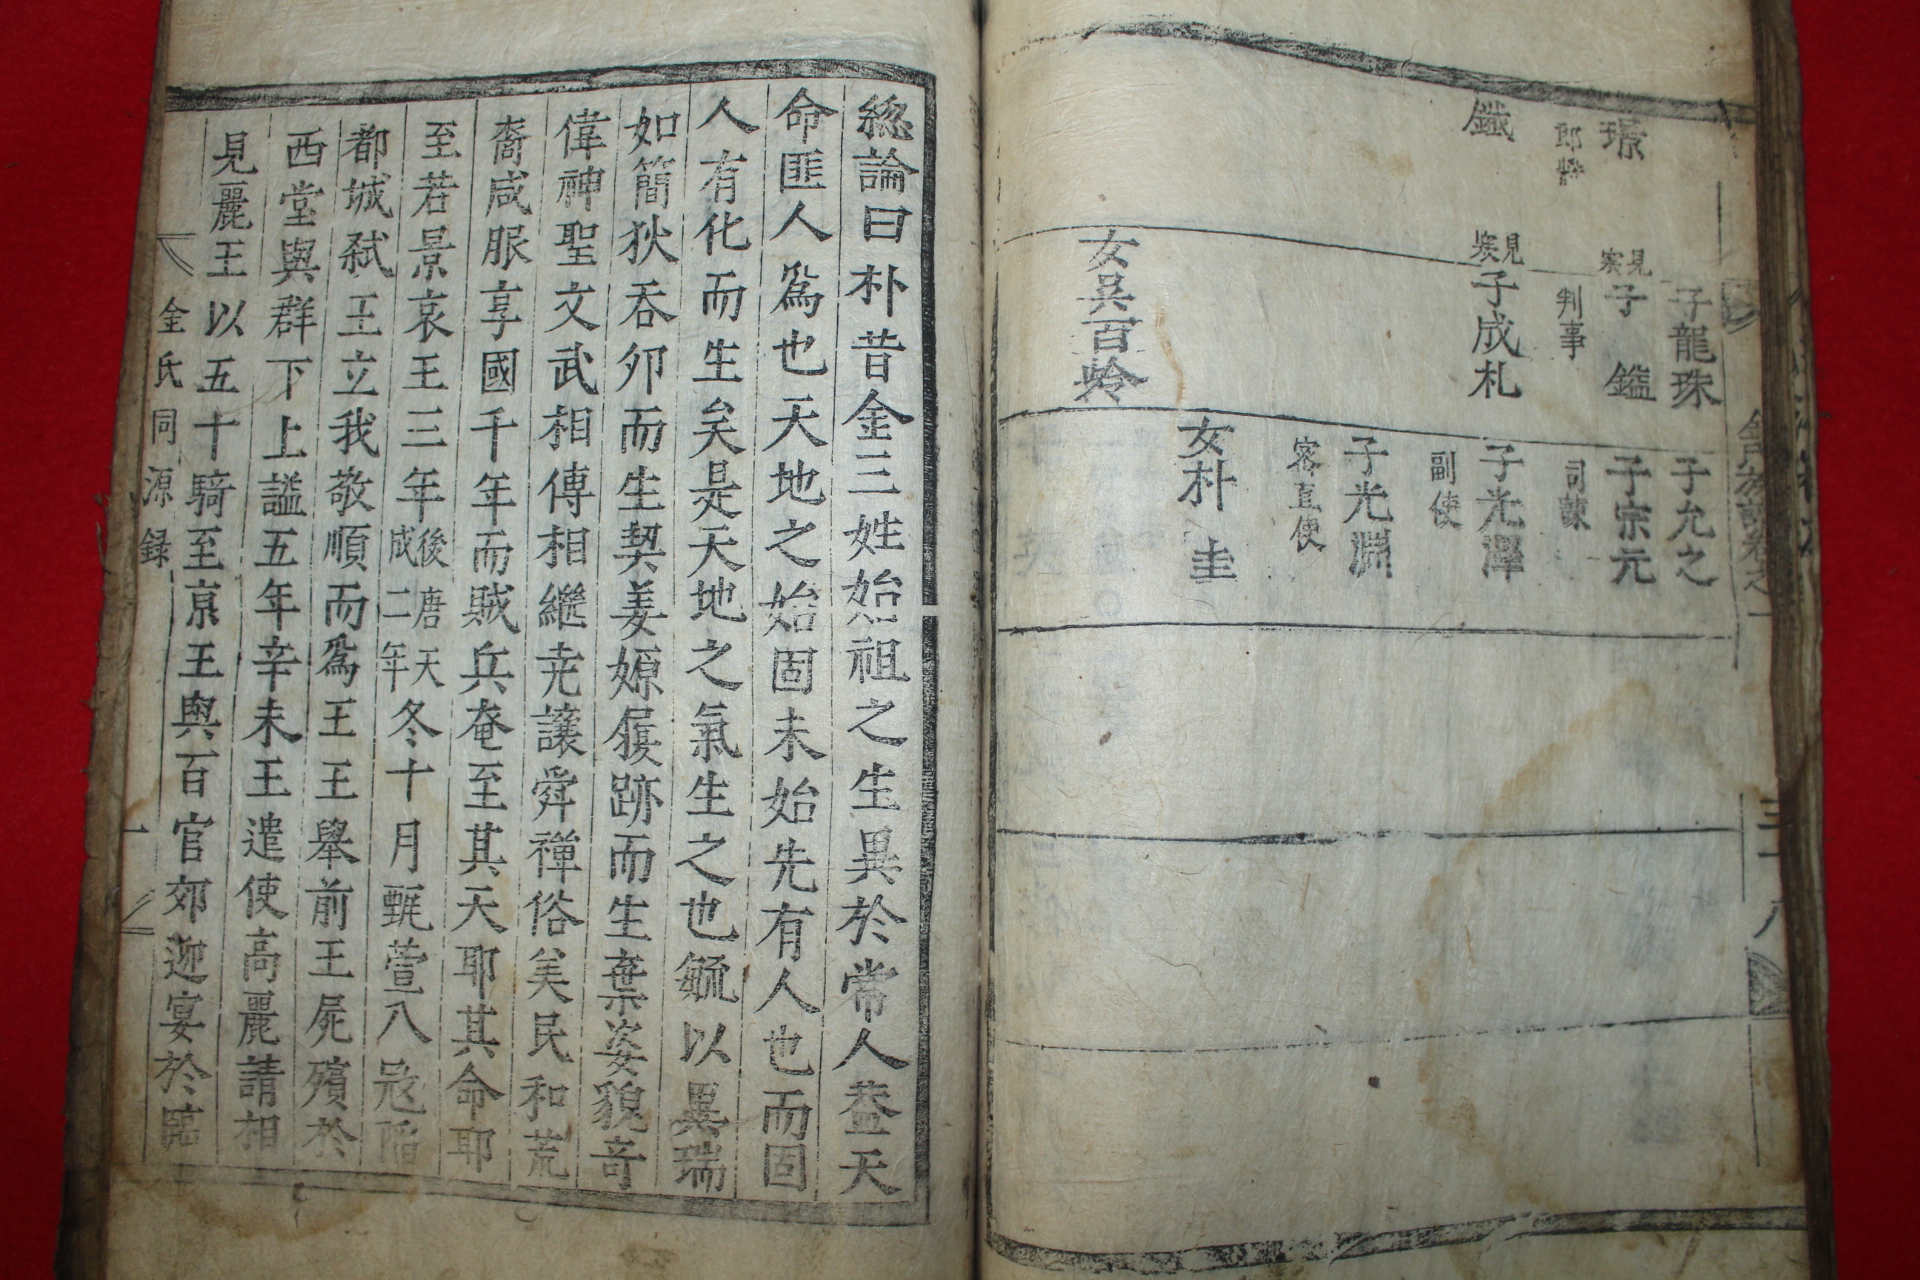 璟
郎將
鐵
子龍珠
子鎰
判事
子成札
女吳百齡
子允之
子宗元
司諫
子光澤
副使
子光淵
密直使
女朴圭
三十八
緫論曰朴昔金三姓始祖之生異於常人盖天
命匪人爲也天地之始固未始先有人也而固
人有化而生矣是天地之氣生之也毓以異瑞
如簡狄吞卵而生契姜嫄履跡而生棄姿貌奇
偉神聖文武相傳相繼尭讓舜禪俗美民和荒
裔咸服享國千年而賊兵奄至其天耶其命耶
至若景哀王三年後唐天成二年冬十月甄萱入寇陷
都城弑王立我敬順而爲王王擧前王屍殯於
西堂與群下上謚五年辛未王遣使高麗請相
見麗王以五十騎至亰王與百官郊迎宴於臨
金氏同源録
一